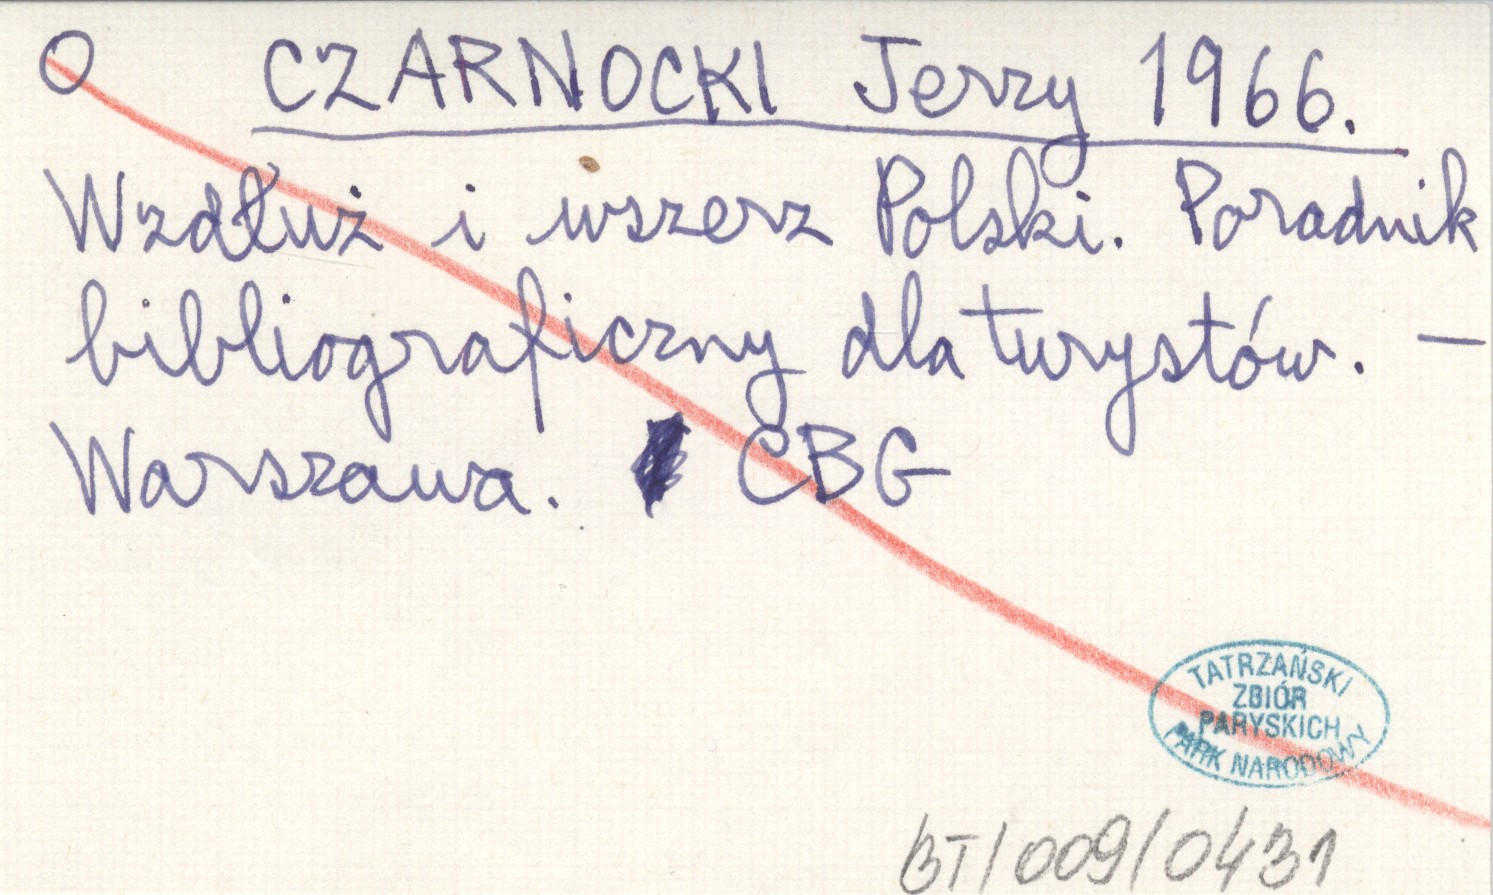 O CZARNOCKI Jerzy 1966.
Wzdłuż i wszerz Polski. Poradnik
bibliograficzny dla turystów. —
Warszawa. CBG
TATRZAŃSKI
ZBIÓR
PARYSKICH
PARK NARODOWY
BT/009/0431